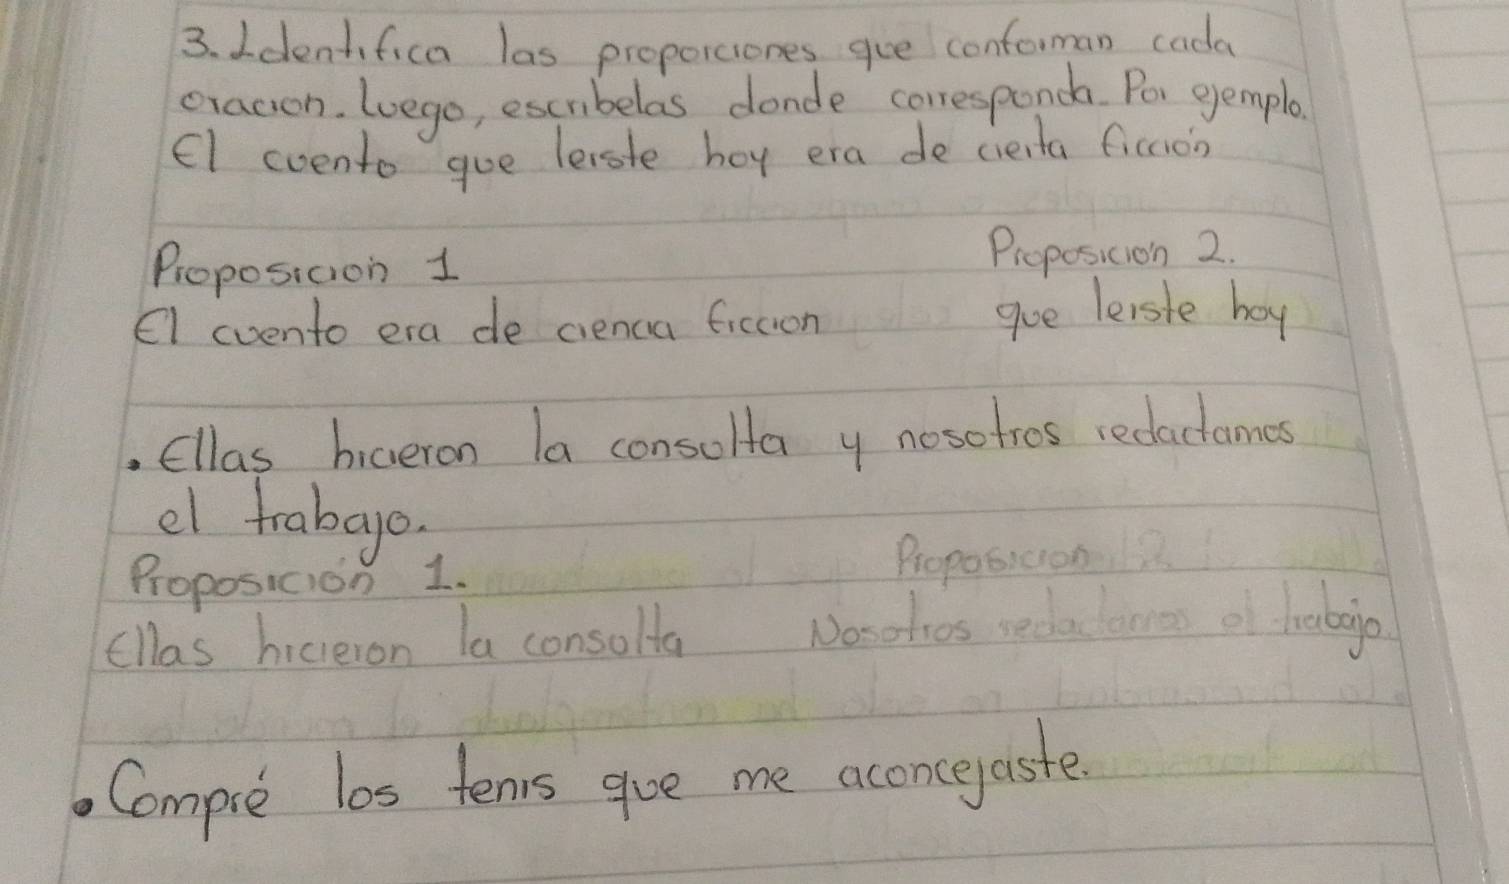 3. Identifica las proporciones que conforman cada
oracion. luego, escribelas donde corresponda. Por ejemplo.
El cuento que leiste hoy era de cierta ficción
Proposicion 1
Proposición 2.
El cuento era de ciencia ficcion
que leiste hoy
. Ellas hicieron la consulta y nosotros redactamos
el trabajo.
Proposición 1.
Proposicion 2
Ellas hicieron la consulta
Nosotros redactamos el trabajo
. Compré los tenis que me aconcejaste.